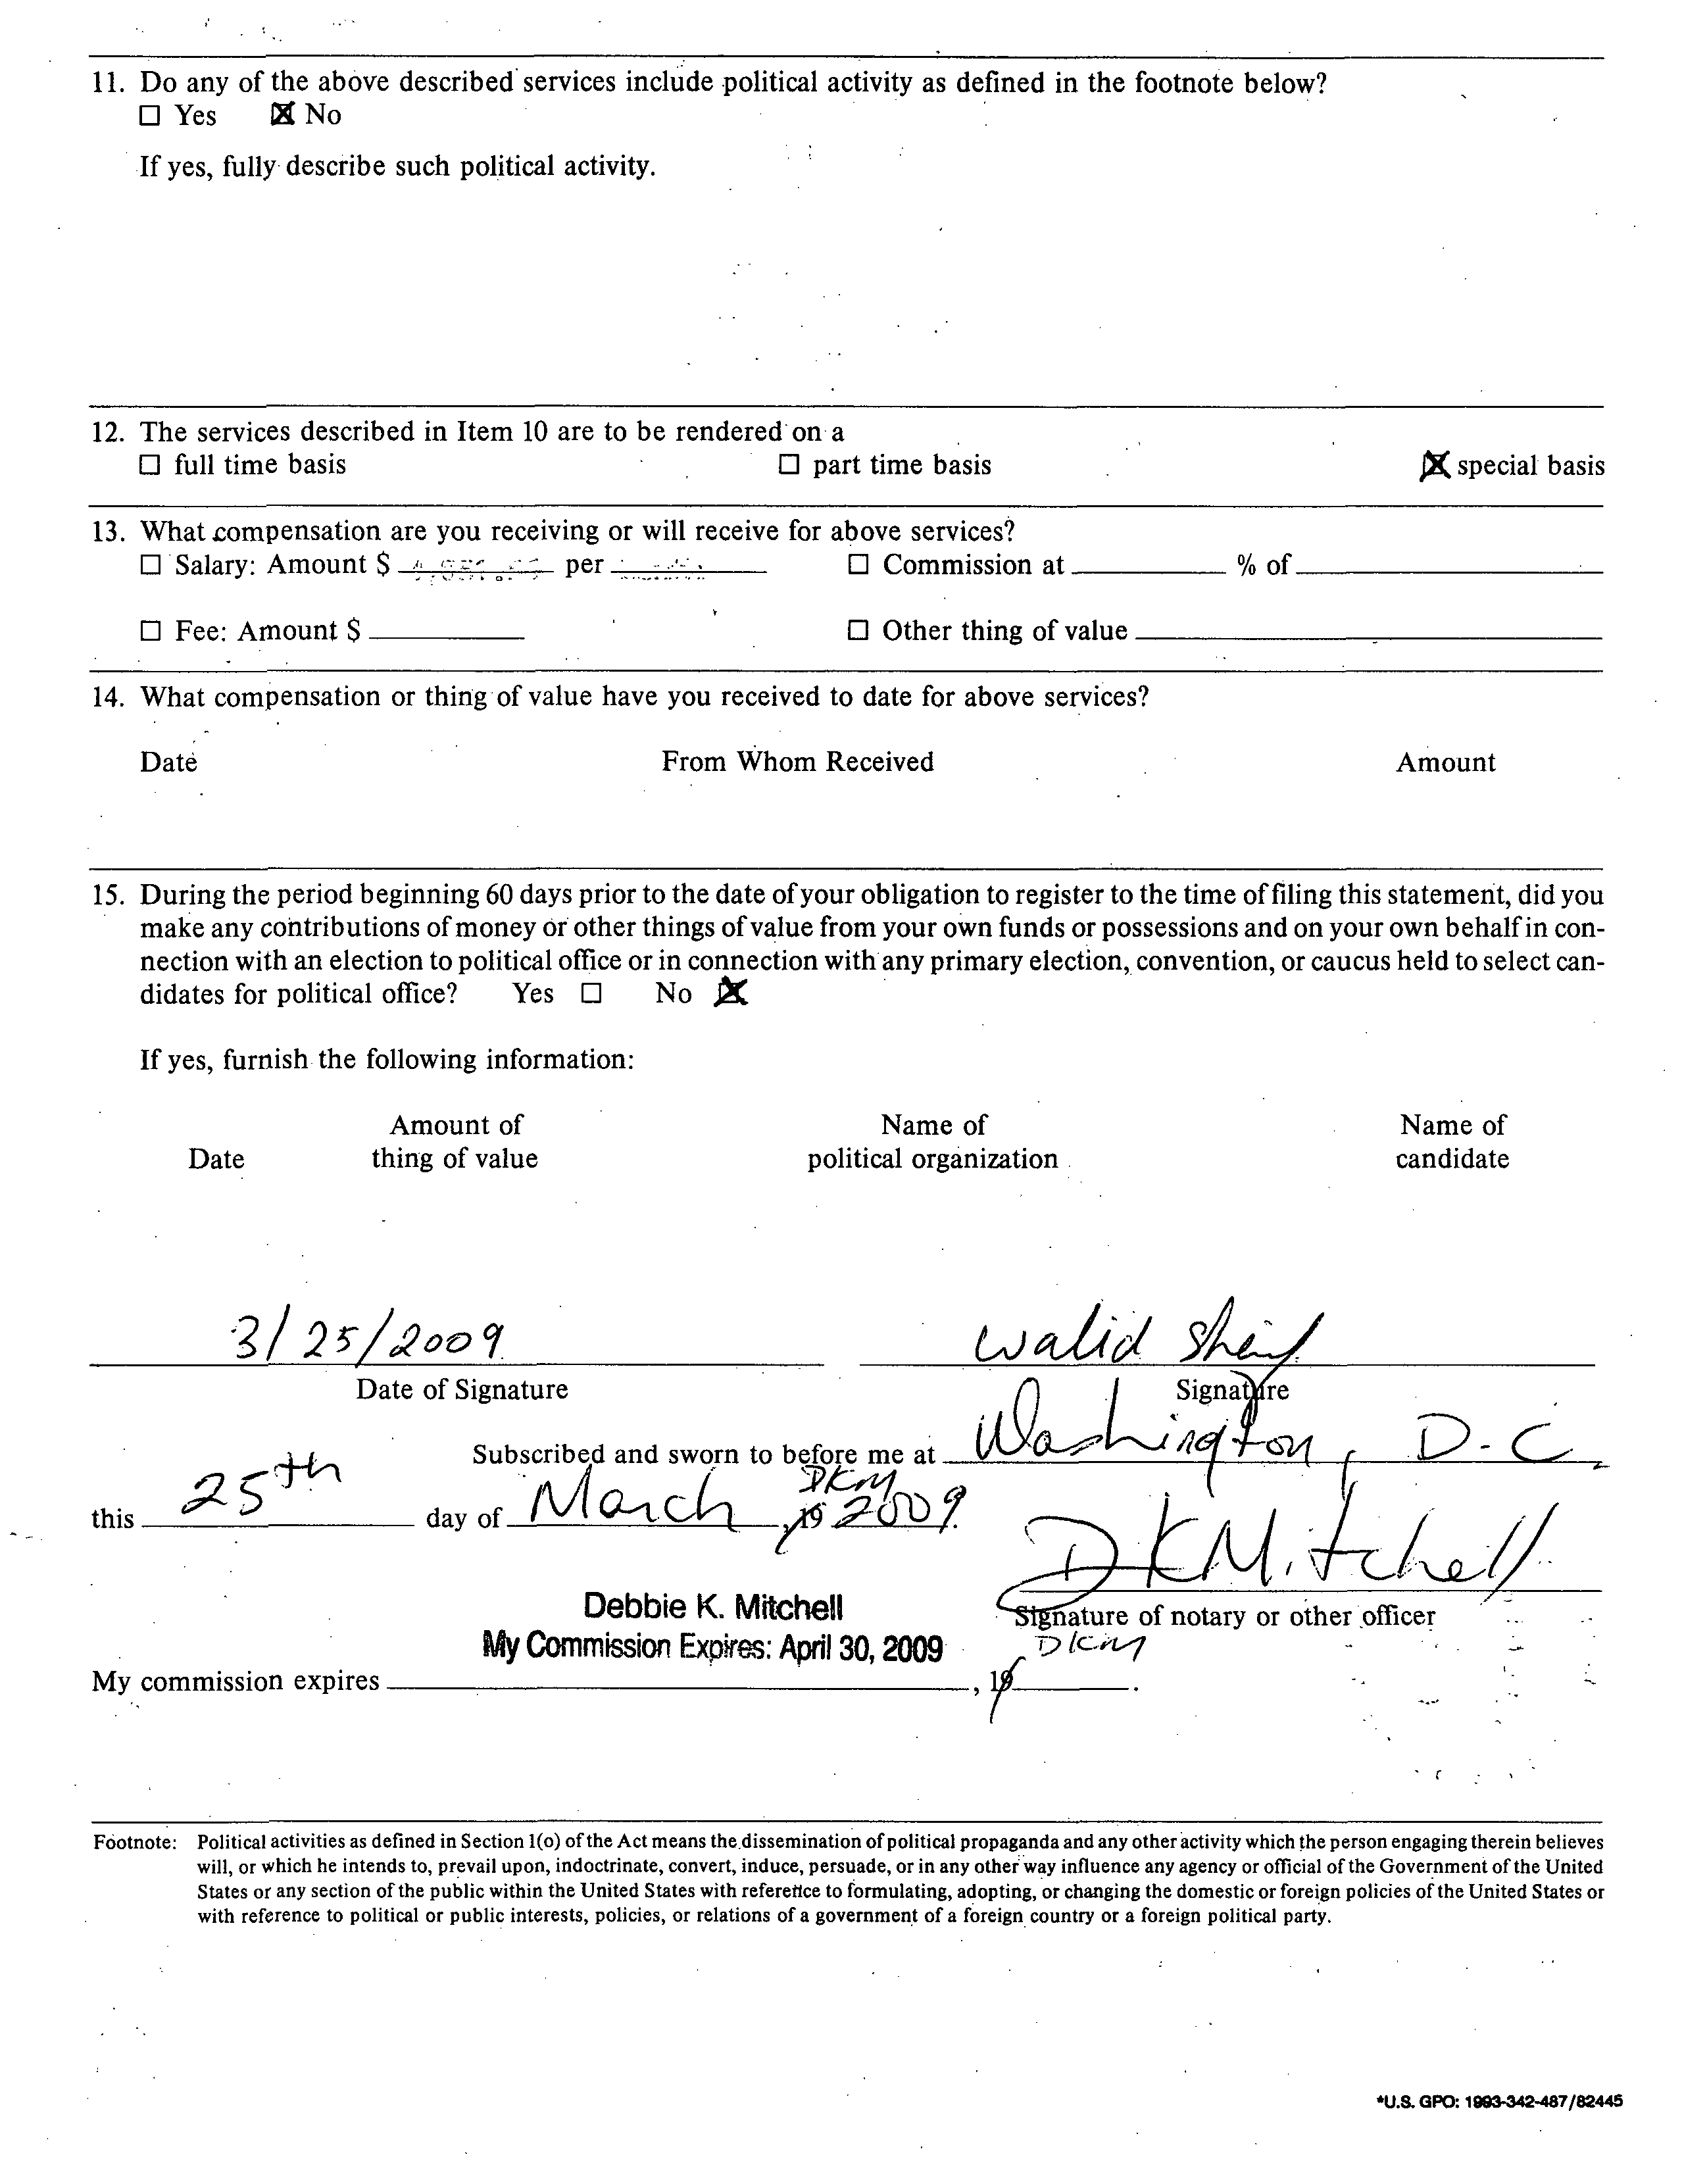 11. Do any of the above described services include political activity as defined in the footnote below?
☐ Yes ☒ No
If yes, fully describe such political activity.
12. The services described in Item 10 are to be rendered on a
☐ full time basis ☐ part time basis ☒ special basis
13. What compensation are you receiving or will receive for above services?
☐ Salary: Amount $ ________ per ________ ☐ Commission at ________ % of ________
☐ Fee: Amount $ ________ ☐ Other thing of value ________
14. What compensation or thing of value have you received to date for above services?
Date From Whom Received Amount
15. During the period beginning 60 days prior to the date of your obligation to register to the time of filing this statement, did you
make any contributions of money or other things of value from your own funds or possessions and on your own behalf in con-
nection with an election to political office or in connection with any primary election, convention, or caucus held to select can-
didates for political office? Yes ☐ No ☒
If yes, furnish the following information:
Amount of Name of Name of
Date thing of value political organization candidate
3/25/2009 walid
Date of Signature Signature
Subscribed and sworn to before me at Washington, D.C.
DKM
this 25th day of March, 19 2009.
DKMitchell
Debbie K. Mitchell
Signature of notary or other officer
My Commission Expires: April 30, 2009 DKM
My commission expires ________, 19____.
Footnote: Political activities as defined in Section 1(o) of the Act means the dissemination of political propaganda and any other activity which the person engaging therein believes
will, or which he intends to, prevail upon, indoctrinate, convert, induce, persuade, or in any other way influence any agency or official of the Government of the United
States or any section of the public within the United States with reference to formulating, adopting, or changing the domestic or foreign policies of the United States or
with reference to political or public interests, policies, or relations of a government of a foreign country or a foreign political party.
*U.S. GPO: 1993-342-487/82445